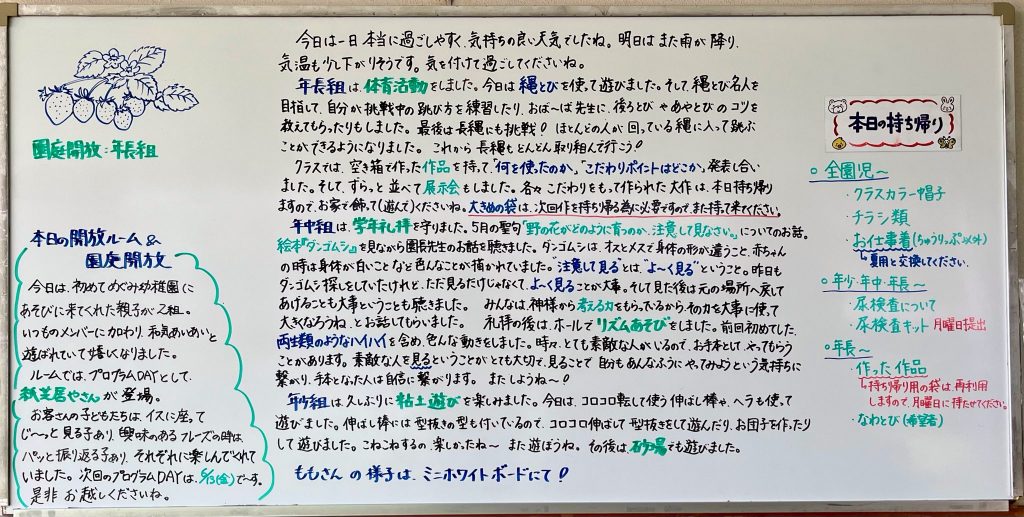 園庭開放:年長組
本日の開放ルーム&
園庭開放
今日は、初めてのぐみ幼稚園に
あそびに来てくれた親子が2組。
いつものメンバーに加わり、和気あいあいと
遊ばれていて嬉しくなりました。
ルームでは、プログラムDAYとして、
紙芝居やさんが登場。
お客さんの子どもたちは、イスに座って
じ〜っと見る子あり、興味のあるフレーズの時は
パッと振り返る子あり、それぞれに楽しんでくれて
いました。次回のプログラムDAYは、6/13(金)で〜す。
是非お越しくださいね。
今日は一日本当に過ごしやすく、気持ちの良い天気でしたね。明日はまた雨が降り、
気温も少し下がりそうです。気を付けて過ごしてくださいね。
年長組は、体育活動をしました。今日は縄とびを使って遊びました。そして、縄とび名人を
目指して、自分が挑戦中の跳び方を練習したり、おば〜ば先生に、後ろとびやあやとびのコツを
教えてもらったりもしました。最後は長縄にも挑戦!ほとんどの人が回っている縄に入って跳ぶ
ことができるようになりました。これから長縄もどんどん取り組んで行こう!
クラスでは、空き箱で作った作品を持って、“何を使ったのか。”“こだわりポイントはどこか。”発表し合い
ました。そして、ずらっと並べて展示会もしました。各々こだわりをもって作られた大作は、本日持ち帰り
ますので、お家で飾って(遊んで)くださいね。大きめの袋は、次回作を持ち帰る為に必要ですので、また持って来てください。
年中組は、学年礼拝を守りました。5月の聖句「野の花がどのように育つのか、注意して見なさい。」についてのお話。
絵本『ダンゴムシ』を見ながら園長先生のお話を聴きました。ダンゴムシは、オスとメスで身体の形が違うこと、赤ちゃん
の時は身体が白いことなど色んなことが描かれていました。“注意して見る”とは、“よ〜く見る”ということ。昨日も
ダンゴムシ探しをしていたけれど、ただ見るだけじゃなくて、よ〜く見ることが大事。そして見た後は元の場所へ戻して
あげることも大事ということも聴きました。 みんなは、神様から考える力をもらっているから、その力を大事に使って
大きくなろうね。とお話してもらいました。 礼拝の後は、ホールでリズムあそびをしました。前回初めてした、
両生類のようなハイハイを含め、色んな動きをしました。時々、とても素敵な人がいるので、お手本として、やってもらう
ことがあります。素敵な人を見るということがとても大切で、見ることで自分もあんなふうにやってみようという気持ちに
繋がり、手本となった人は自信に繋がります。 またしようね〜!
年少組は、久しぶりに粘土遊びを楽しみました。今日は、コロコロ転して使う伸ばし棒や、ヘラも使って
遊びました。伸ばし棒には型抜きの型も付いているので、コロコロ伸ばして型抜きをして遊んだり、お団子を作ったり
して遊びました。こねこねするの、楽しかったね〜 また遊ぼうね。その後は、砂場でも遊びました。
ももさんの様子は、ミニホワイトボードにて!
本日の持ち帰り
○全園児〜
・クラスカラー帽子
・チラシ類
・お仕事着(ちゅうりっぷ以外)
↳夏用と交換してください。
○年少・年中・年長〜
・尿検査について
・尿検査キット 月曜日提出
○年長〜
・作った作品
↳持ち帰り用の袋は、再利用
しますので、月曜日に持たせてください。
・なわとび(希望者)